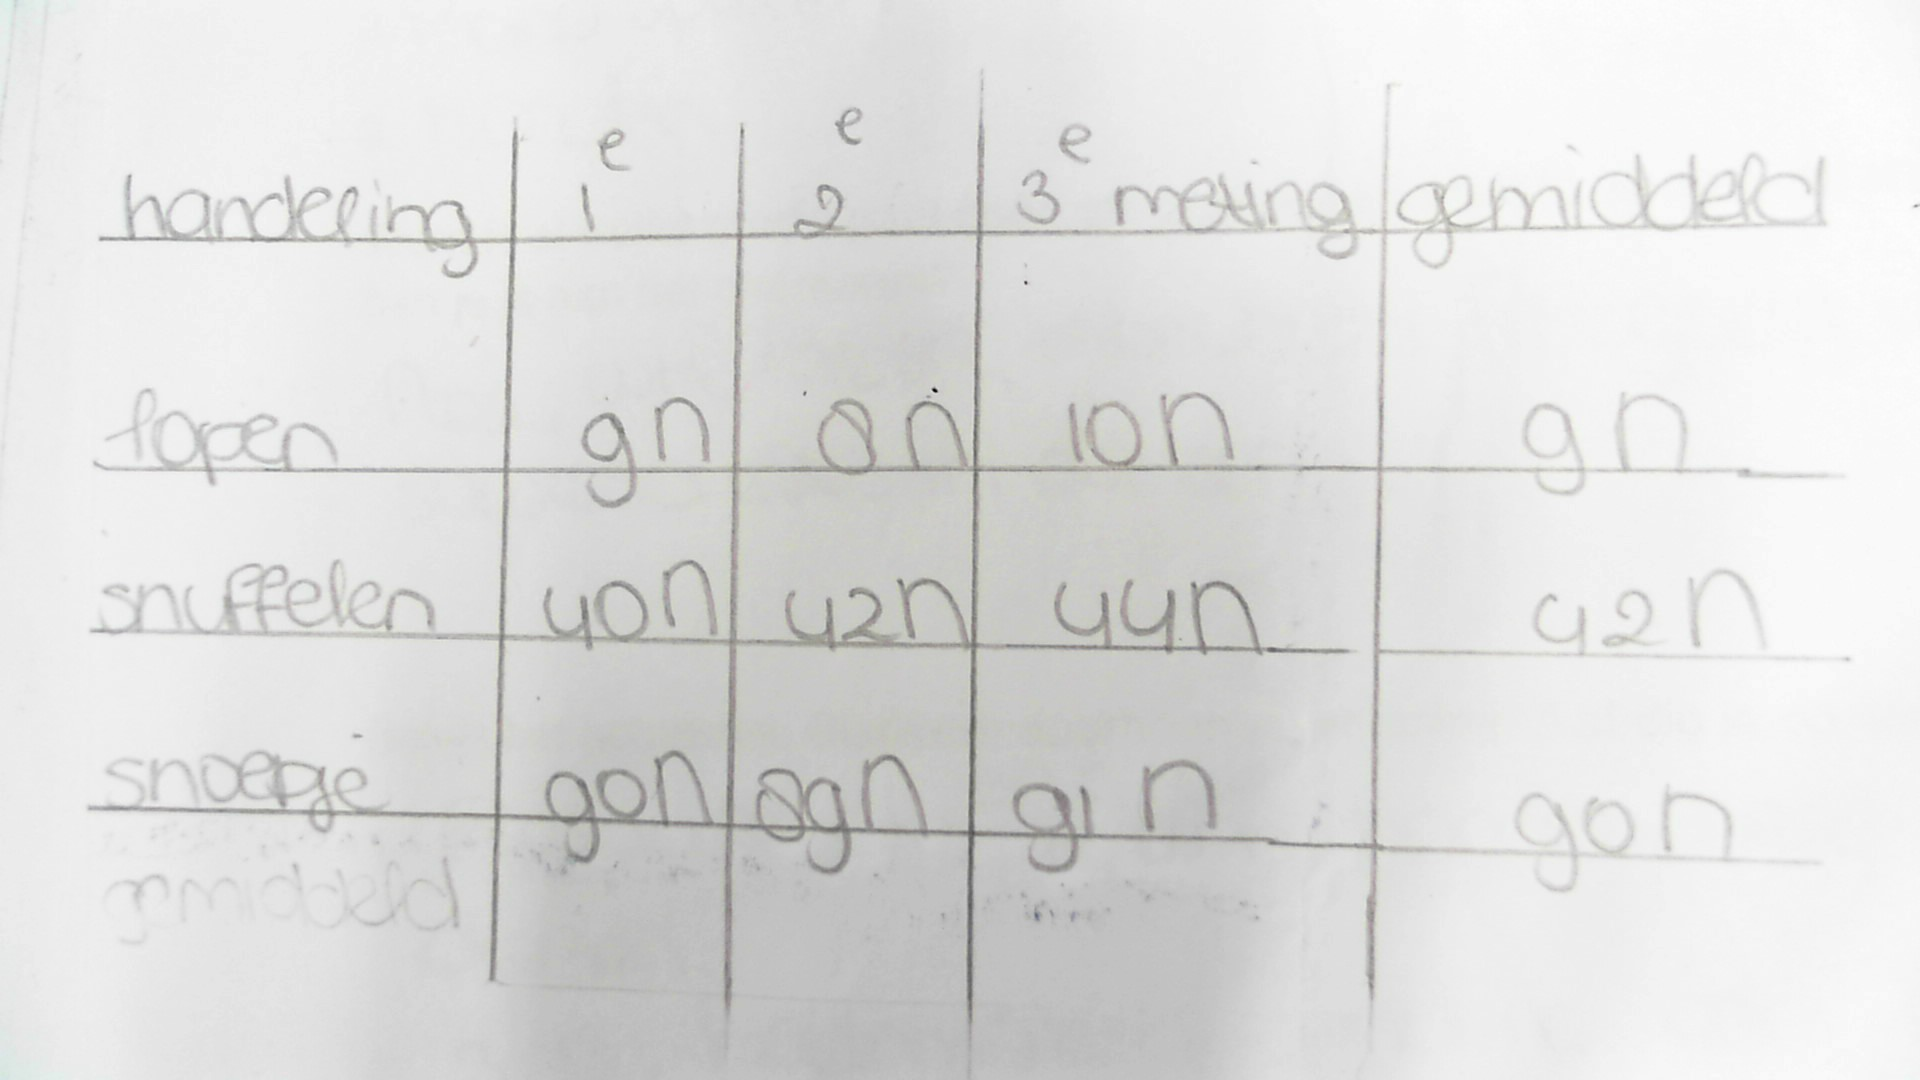 handeling 1e 2e 3e meting gemiddeld
lopen 9n 8n 10n 9n
snuffelen 40n 42n 44n 42n
snoepje 90n 89n 91n 90n
gemiddeld